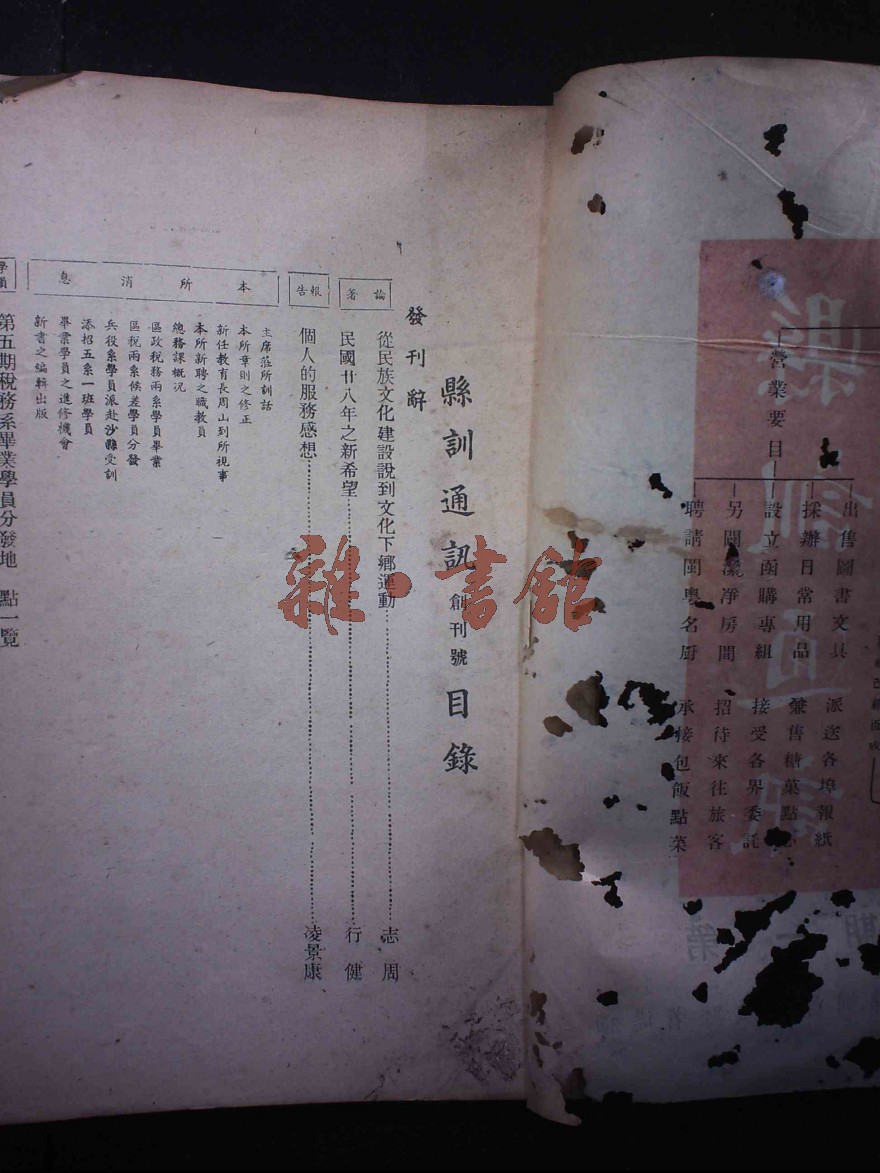 營業要目
出售圖書文具 派送各埠報紙
採辦日常用品 兼售糖菓點心
設立函購專組 接受各界委託
另闢潔净房間 招待來往旅客
聘請閩粵名厨 承接包飯點菜
縣訓通訊
縣訓通訊創刊號目錄
發刊辭
論著
從民族文化建設說到文化下鄉運動 志周
民國廿八年之新希望 行健
報告
個人的服務感想 凌景康
本所消息
主席蒞所訓話
本所章則之修正
新任教育長周山到所視事
本所新聘之職教員
總務課概况
區政稅務兩系學員畢業
區稅兩系候差學員分發
兵役系學員派赴沙縣受訓
添招五系一班學員
畢業學員之進修機會
新書之編輯出版
第五期稅務系畢業學員分發地點一覽
雜·書館